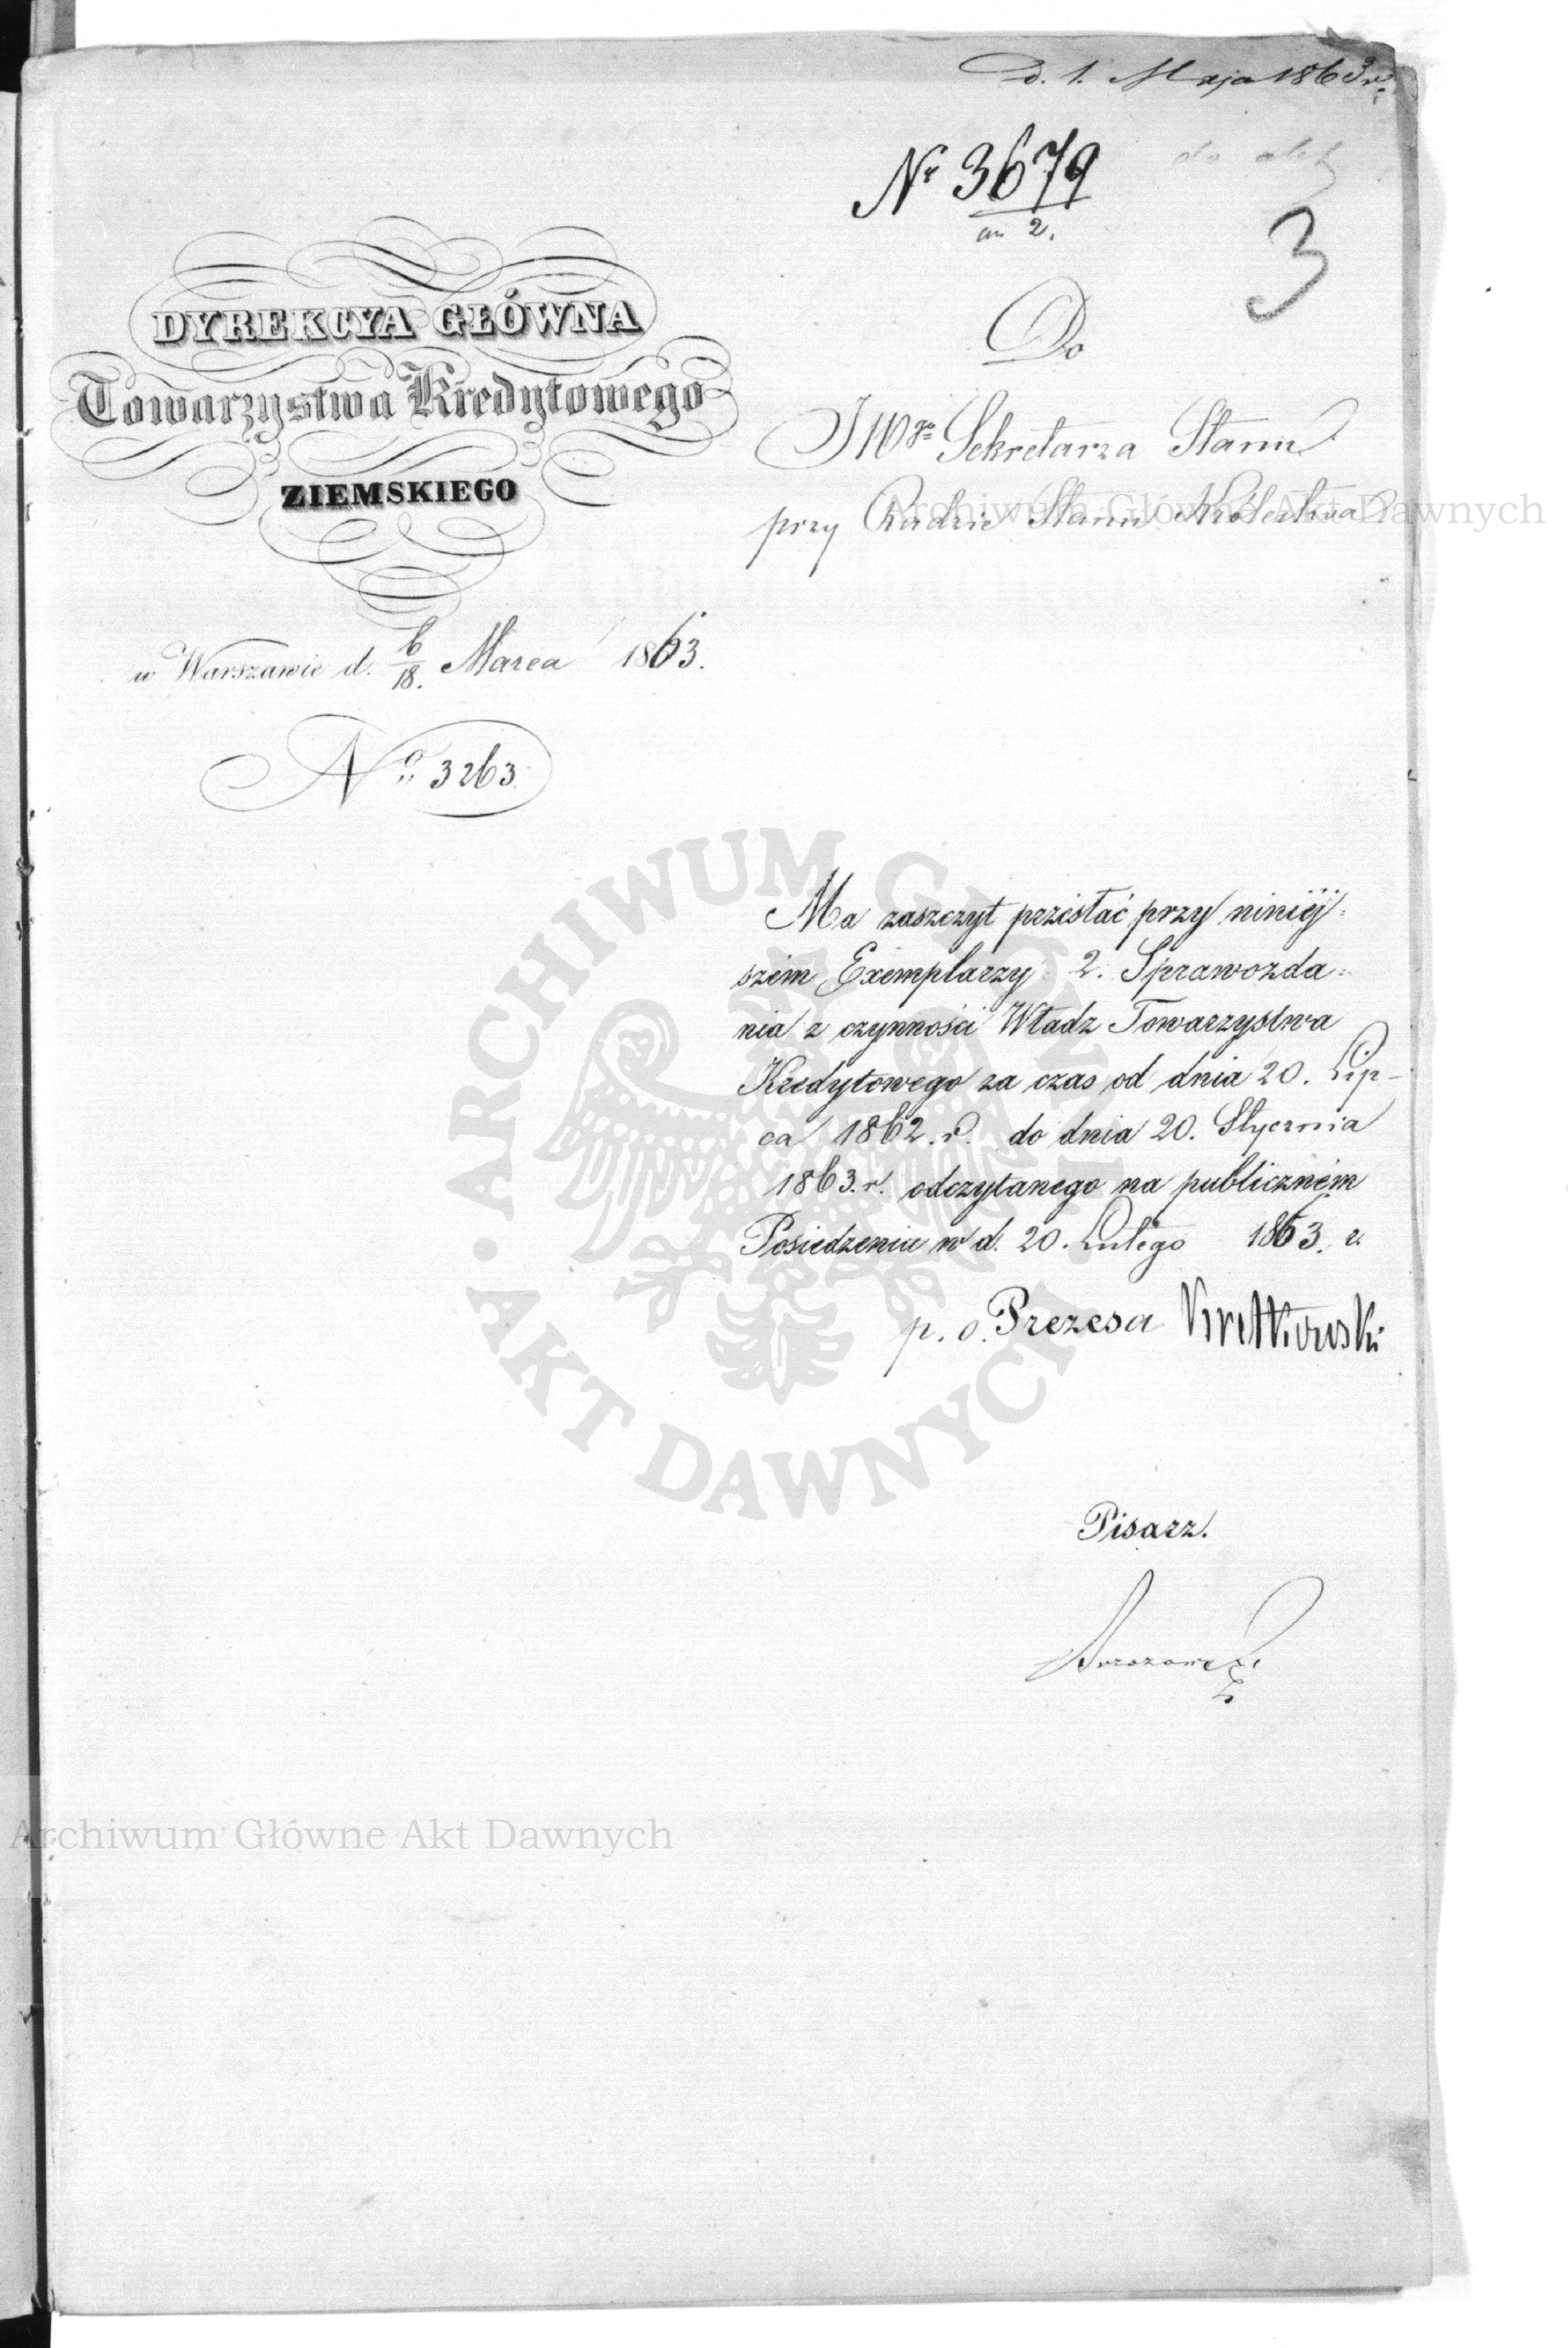 D. 1. Maja 1863 r.
Nr 3679
an 2.
do akt
3
DYREKCYA GŁÓWNA
Towarzystwa Kredytowego
ZIEMSKIEGO
w Warszawie d. 6/18. Marca 1863.
No 3263.
Do
JWgo Sekretarza Stanu
przy Radzie Stanu Królestwa
Ma zaszczyt przesłać przy niniéj=
szém Exemplarzy 2. Sprawozda=
nia z czynności Władz Towarzystwa
Kredytowego za czas od dnia 20. Lip-
ca 1862. r. do dnia 20. Stycznia
1863. r. odczytanego na publiczném
Posiedzeniu w d. 20. Lutego 1863. r.
p. o. Prezesa Kretkowski
Pisarz.
Archiwum Główne Akt Dawnych
ARCHIWUM GŁÓWNE · AKT DAWNYCH ·
Archiwum Główne Akt Dawnych